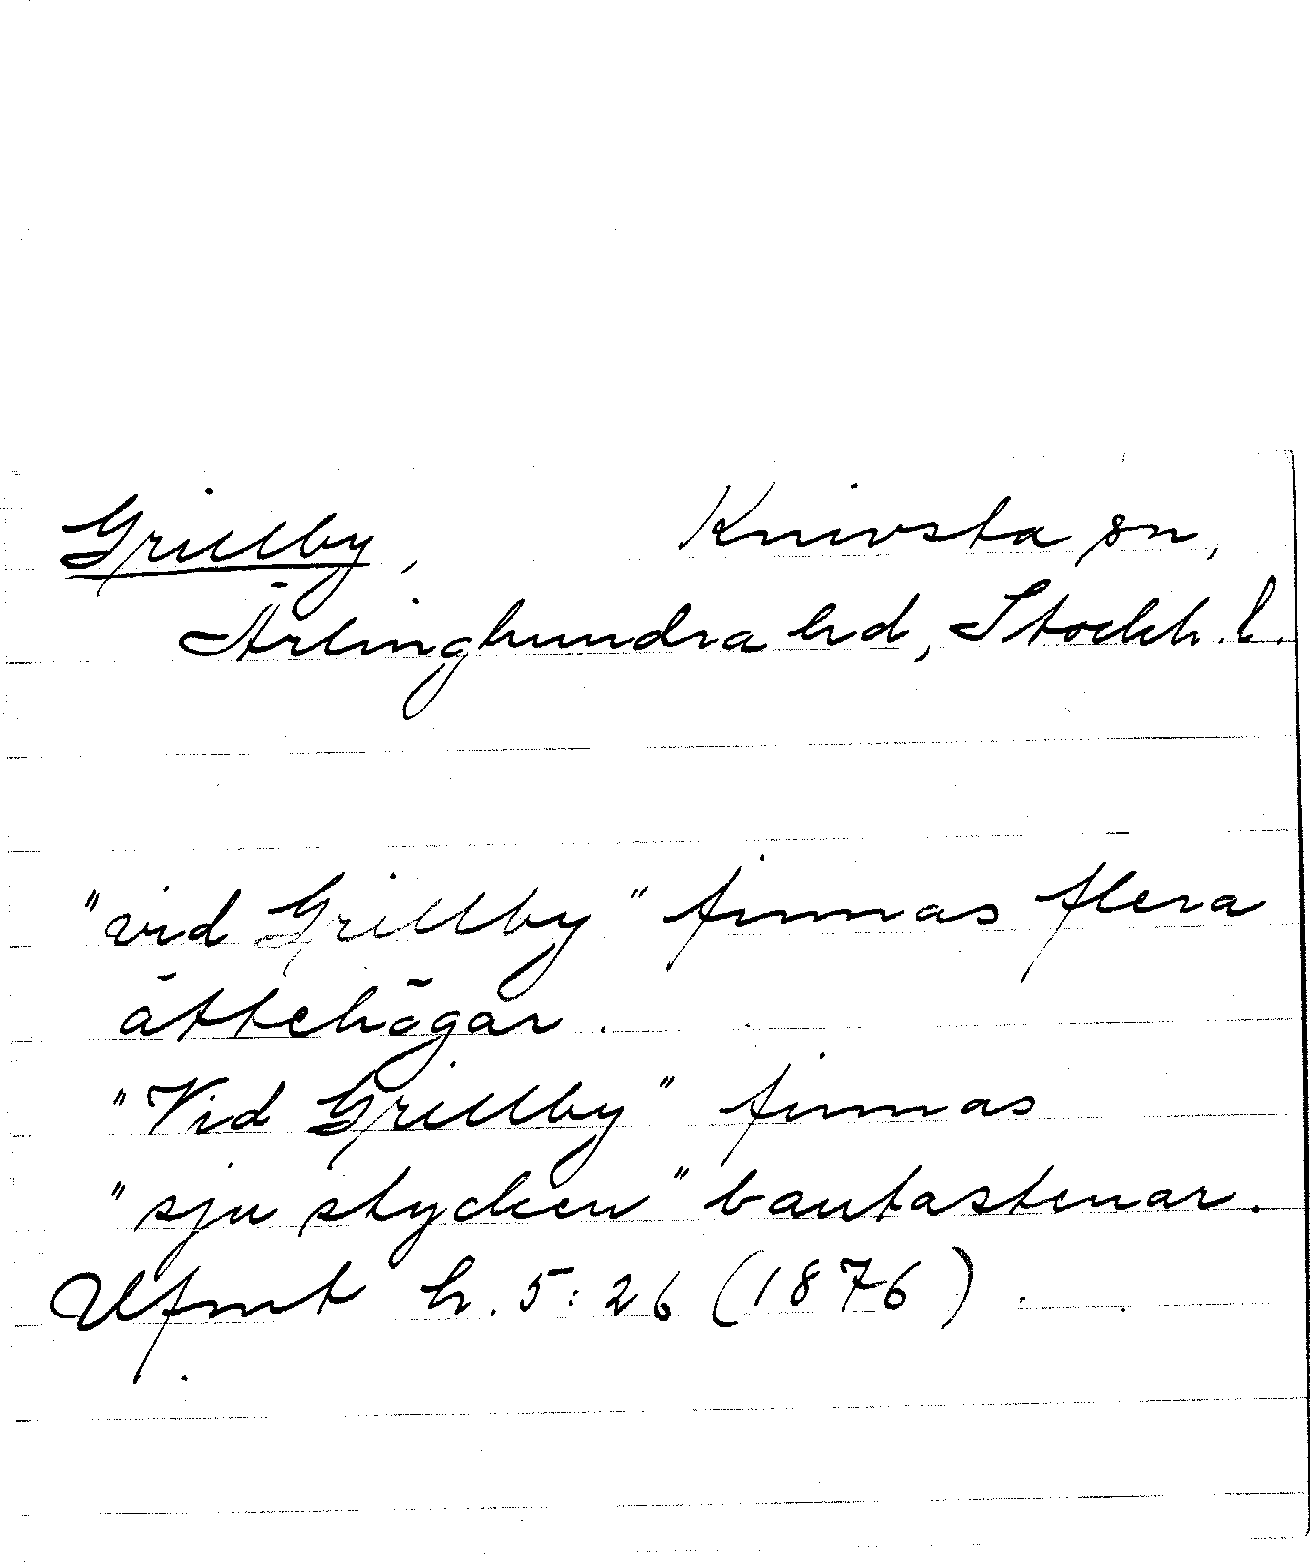 Grillby, Knivsta sn,
Ärlinghundra hd, Stockh. l.
"vid Grillby" finnas flera
ättehögar.
"Vid Grillby" finnas
"sju stycken" bautastenar.
Ufmt h. 5:26 (1876).